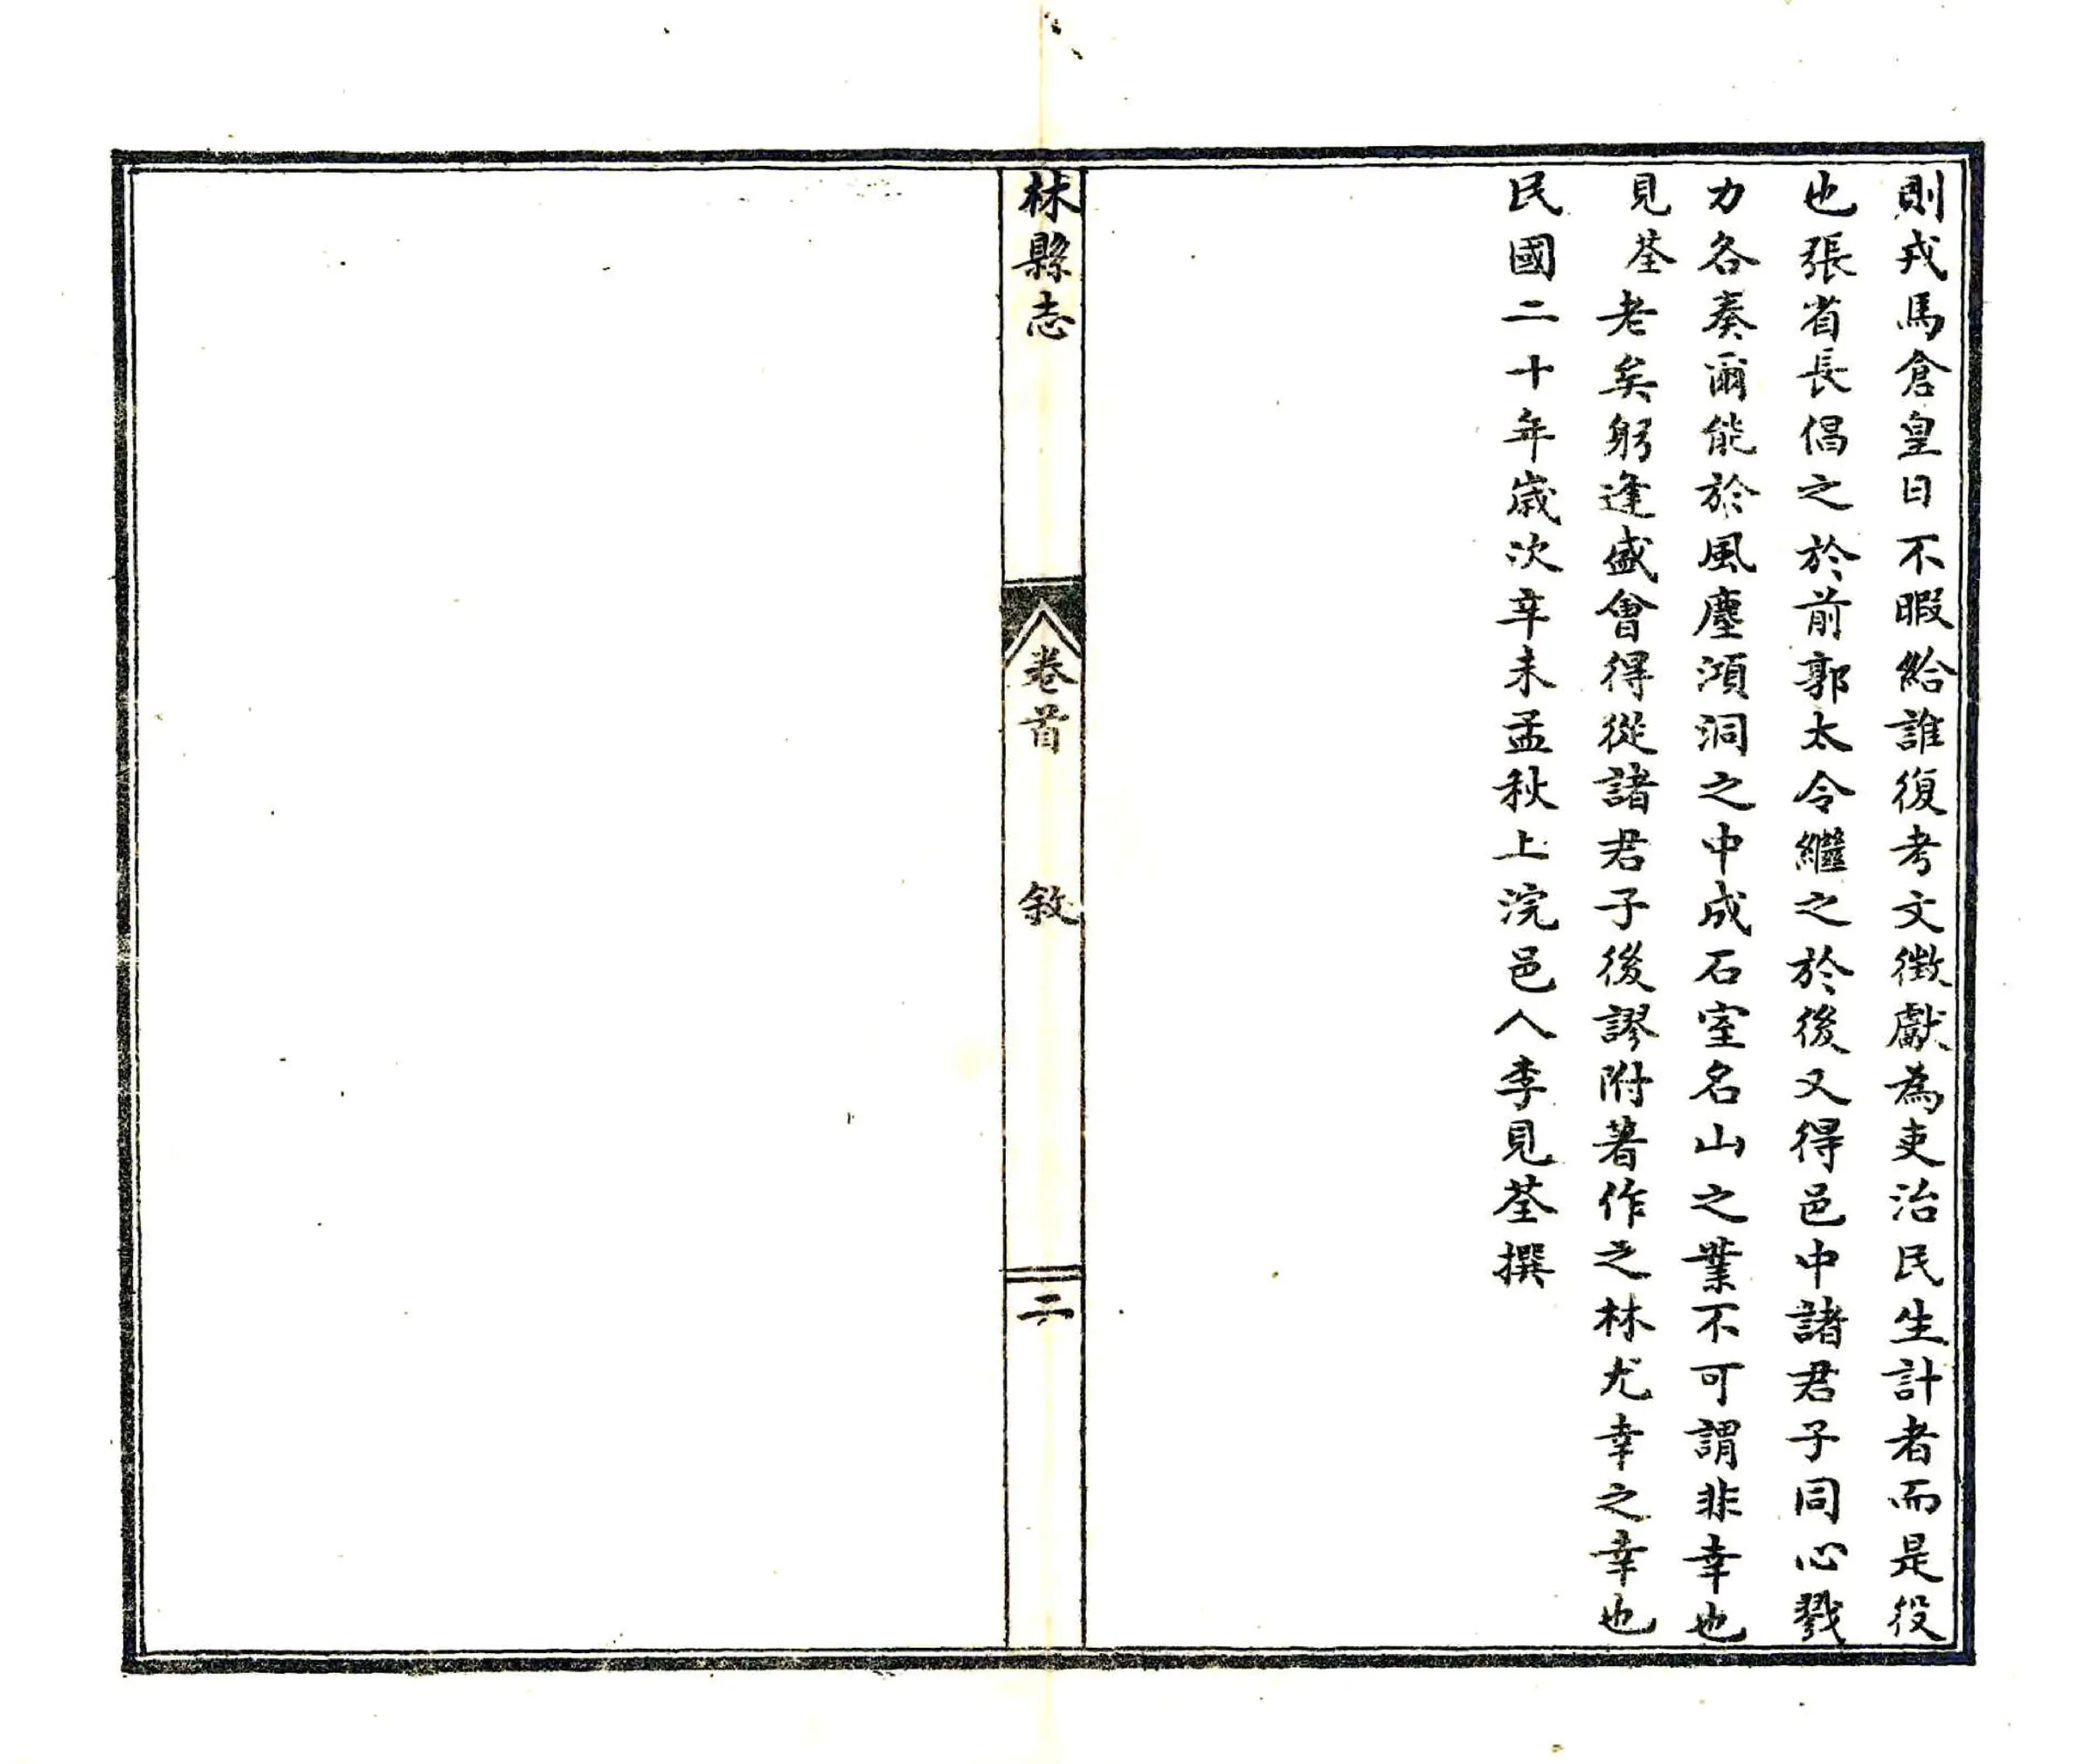 則戎馬倉皇日不暇給誰復考文徵獻為吏治民生計者而是役
也張省長倡之於前郭太令繼之於後又得邑中諸君子同心戮
力各奏爾能於風塵澒洞之中成石室名山之業不可謂非幸也
見荃老矣躬逢盛會得從諸君子後謬附著作之林尤幸之幸也
民國二十年歲次辛未孟秋上浣邑人李見荃撰
林縣志
卷首
敘
二